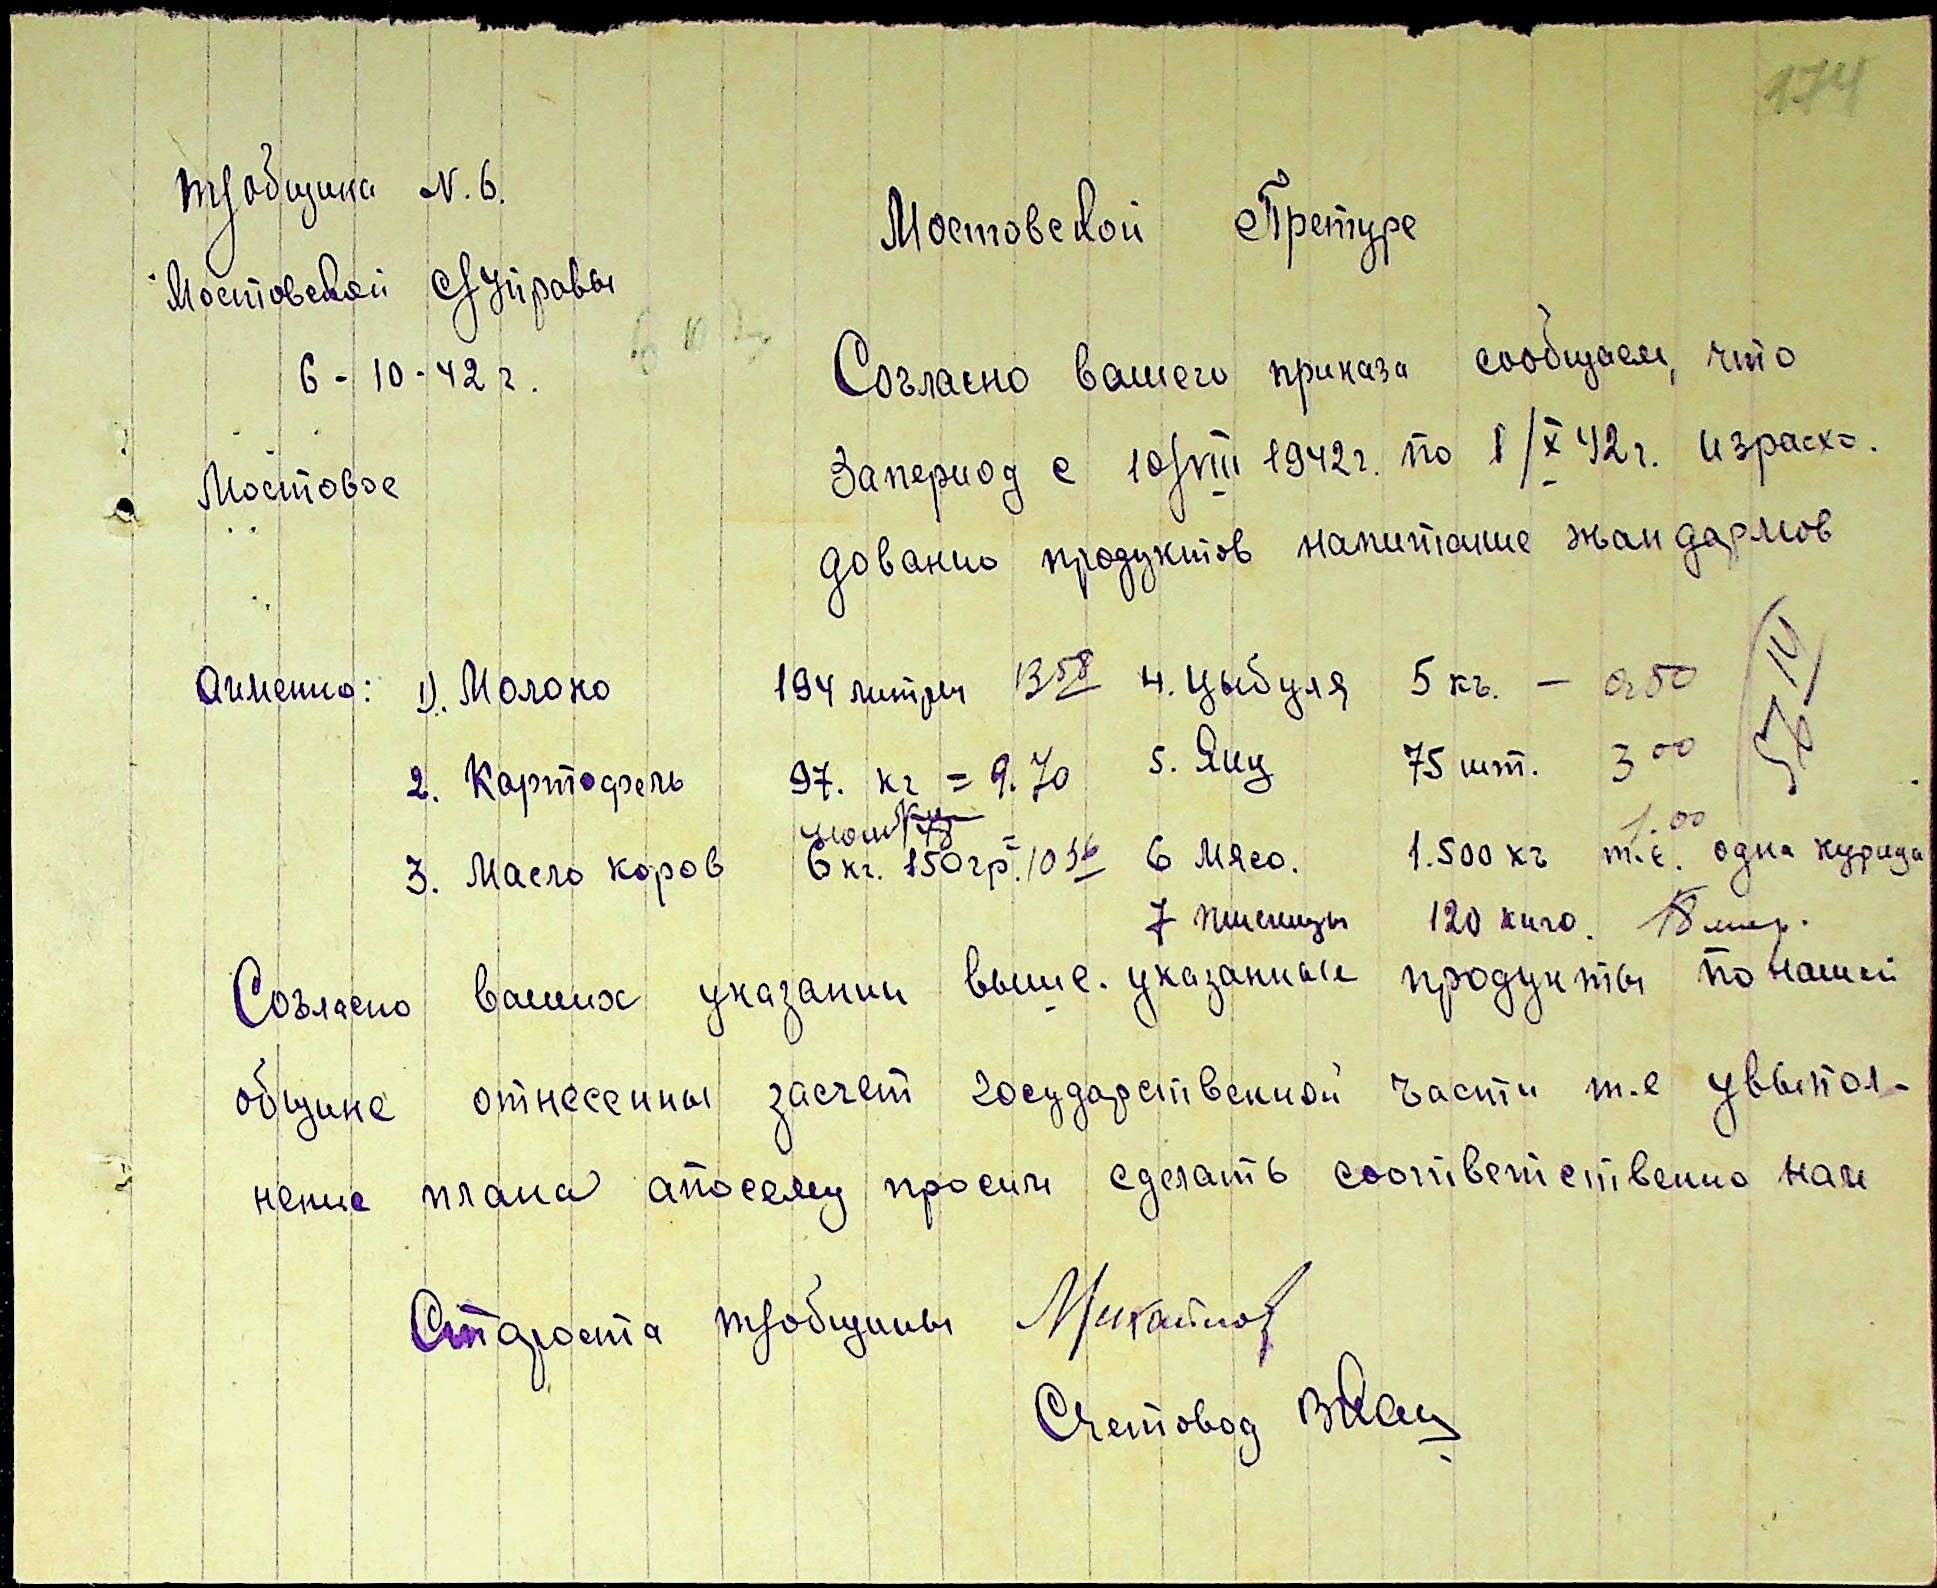 174
Т/община N. 6.
Мостовской С/Управы
6-10-42 г.
Мостовое
Мостовской Претуре
Согласно вашего приказа сообщаем, что
запериод с 10/VIII 1942г. по 1/X 42г. израсхо.
дованно продуктов напитание жандармов
Аименно: 1). Молоко 194 литры 13 58
2. Картофель 97. кг = 9.70
3. Масло коров 6 кг. 150гр. = 10 36
4. Цыбуля 5 кг. — 0.50
5. Яиц 75 шт. 3 00
6 Мясо. 1.500 кг т.е. одна курица 1.00
7 пшеницы 120 кило. 18 мар.
Согласно ваших указании выше.указанные продукты понашей
общине отнесенны засчет государственной части т.е увыпол-
нение плана апосему просим сделать соответственно нам
Староста т/общины Михайлов
Счетовод ВКац